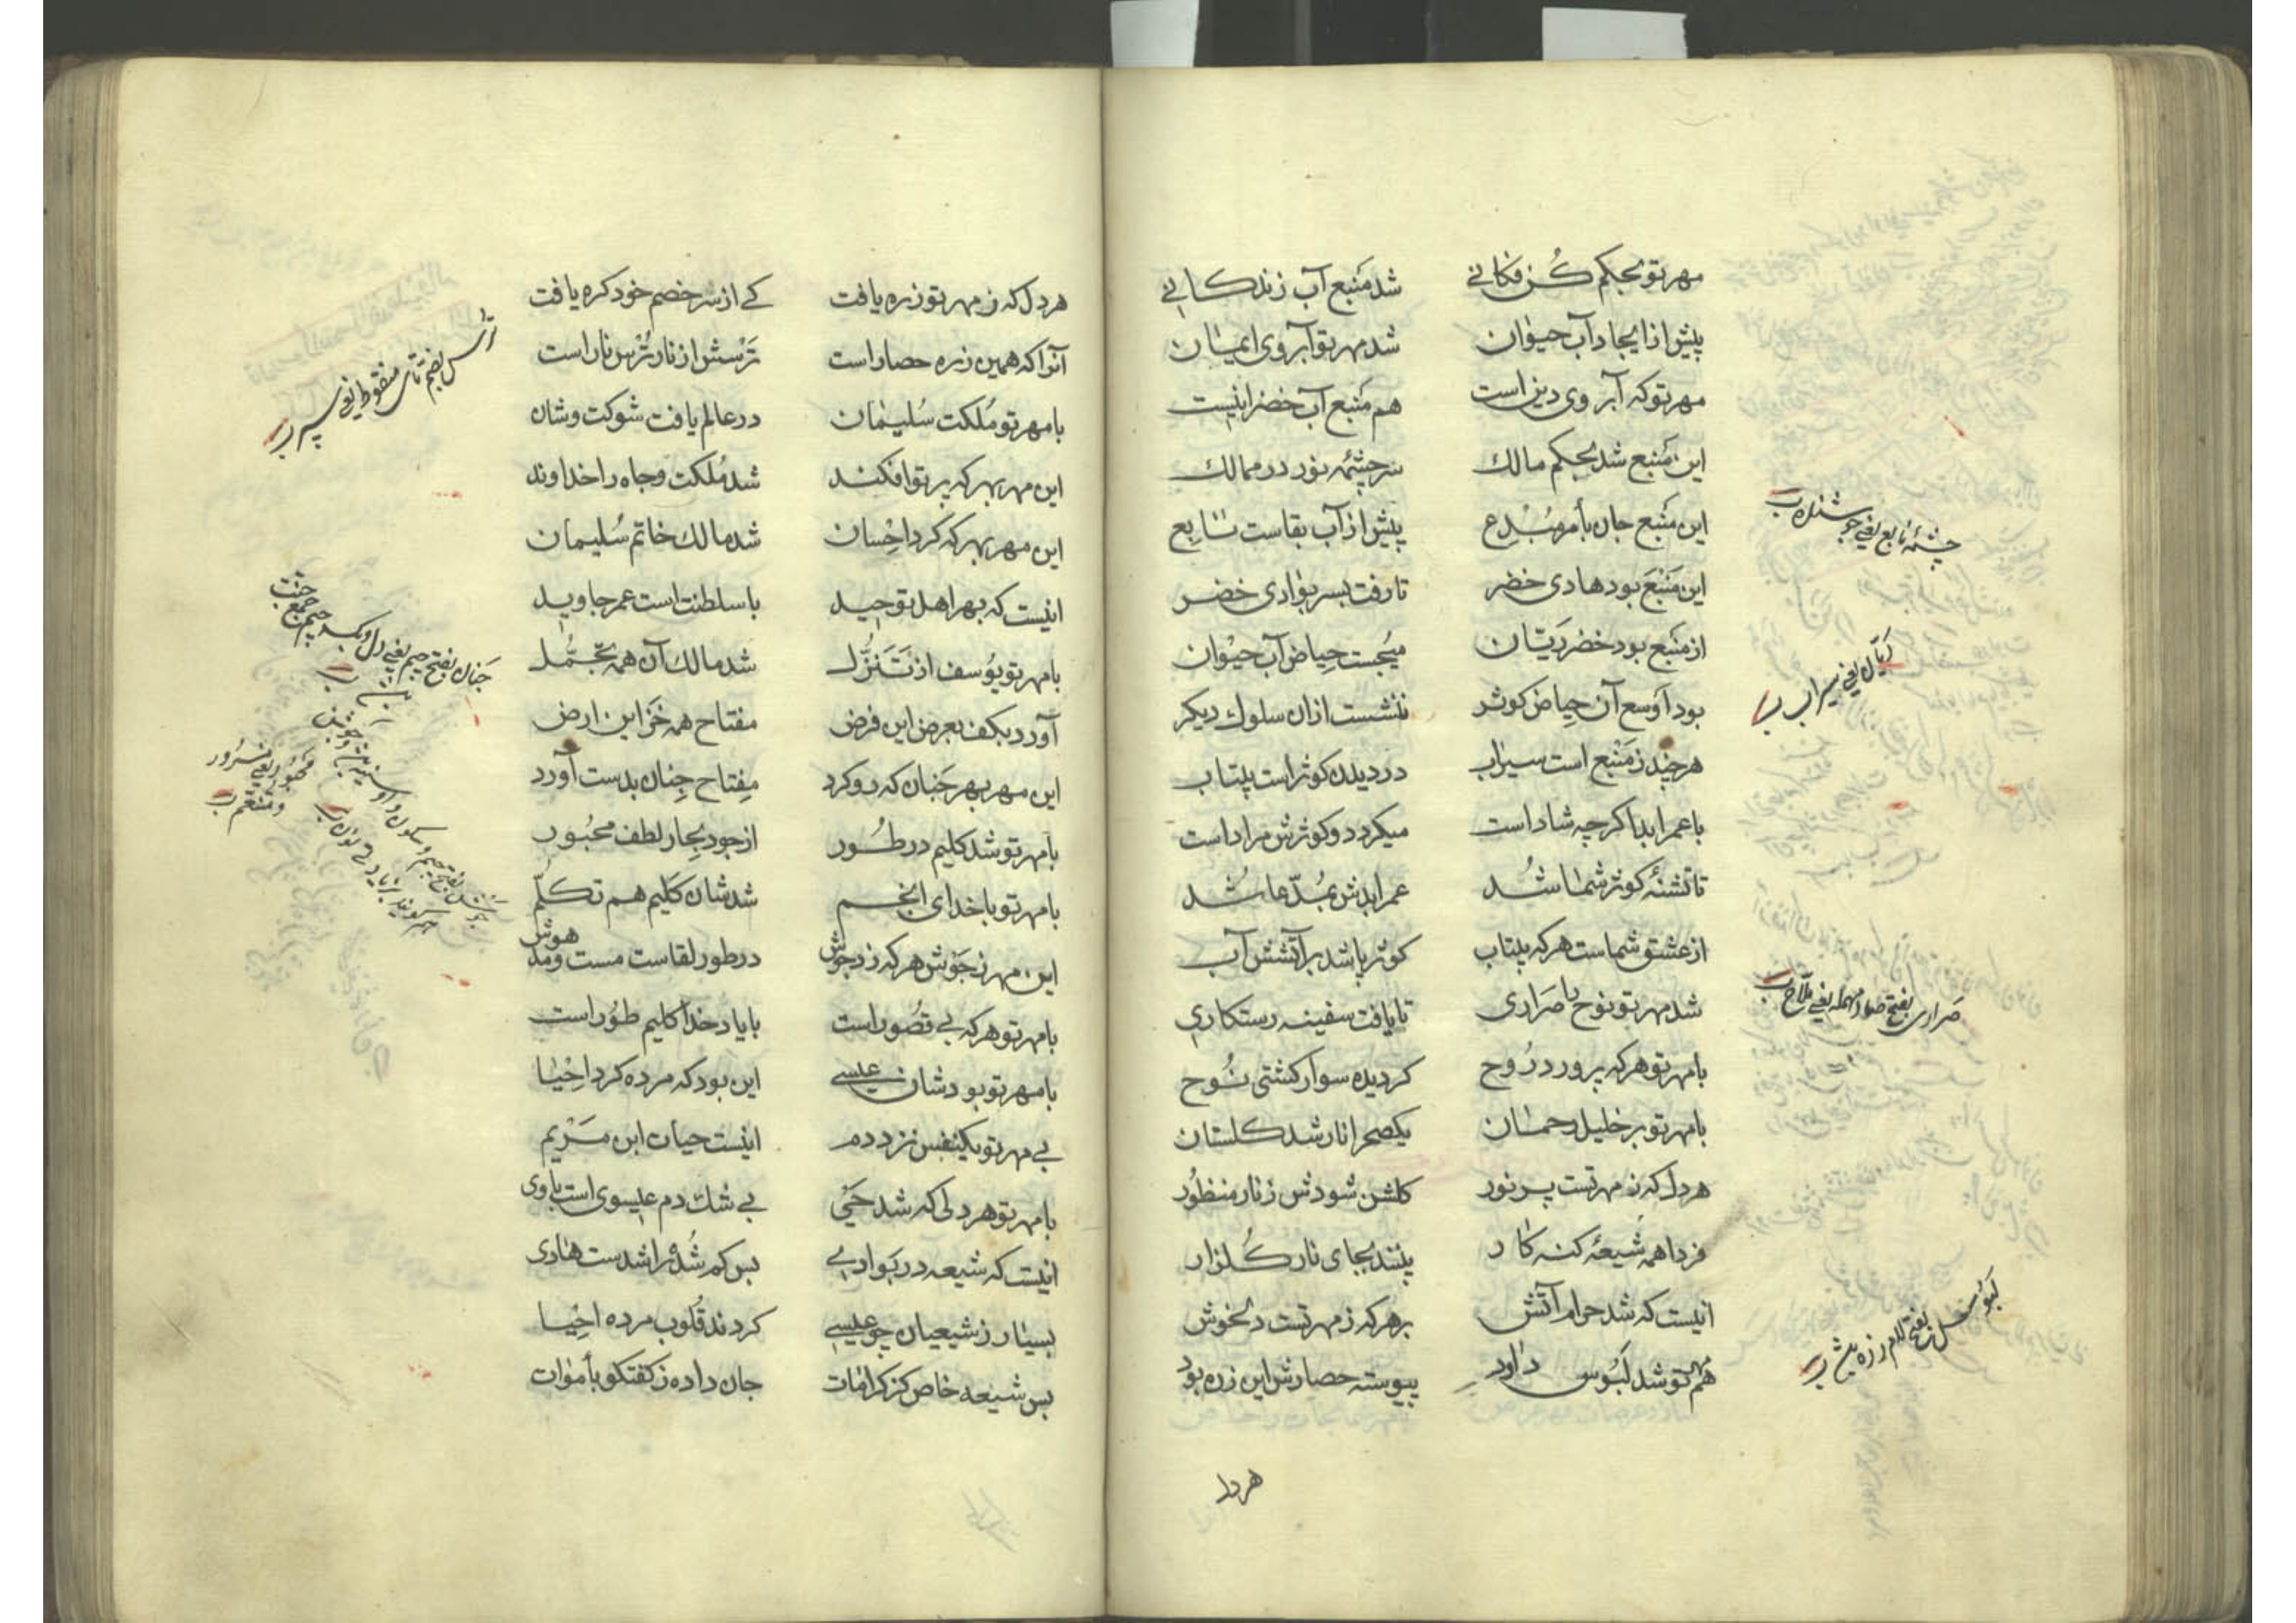 مهر تو بحکم کُن فکانی
شد مَنبع آب زندکانی
پیش از ایجاد آب حیوان
شد مهر تو آبروی ایمان
مهر تو که آبروی دین است
هم مَنبع آب خضر اینست
این مَنبع شد بحکم مالك
سرچشمه نور در ممالك
این مَنبع جان بأمر مُبْدِع
پیش از آب بقاست نابع
این مَنبَع بود هادی خضر
تا رفت بسر بوادی خضر
از مَنبع بود خضر رَیّان
میجُست حِیاض آب حیْوان
بود اَوسع آن حِیاض کوثر
ننشست ازان سلوك دیکر
هر چند ز مَنْبع است سیراب
در دیدن کوثر است بیتاب
با عمر ابد اکرچه شاد است
میکردد و کوثرش مراد است
تا تشنهٔ کوثر شما شُد
عمر ابدش بمُدّعا شُد
از عشق شماست هر که بیتاب
کوثر پاشد بر آتشش آب
شد مهر تو نوح را صَراری
تا یافت سفینه رستکاری
با مهر تو هر که پرورد رُوح
کردیده سوار کشتی نُوح
با مهر تو بر خلیل رحمان
یکصحرا نار شد کلستان
هر دل که ز مهر تست پر نور
کلشن شودش ز نار منظُور
فردا همه شیعهٔ کنه کار
بینند بجای نار کُلزار
اینست که شد حرام آتش
بر هر که ز مهر تست دلخوش
هم مهر تو شد لَبُوس داود
پیوسته حصارش این زره بود
چشمهٔ نابع یعنی جوشنده ب
رَیّان یعنی سیراب ب
صَراری بفتح صاد مهمله یعنی ملّاح ب
لَبُوس بفتح لام زره
هر دل
هر دل که ز مهر تو زره یافت
کے از سر خصم خود کره یافت
آنرا که همین زره حصار است
تَرْسش از نار تُرْس نار است
با مهر تو مُلکت سُلیمان
در عالم یافت شوکت و شان
این مهر بهر که پرتو افکند
شد مُلکت و جاه را خداوند
این مهر بهر که کرد احْسان
شد مالك خاتم سُلیمان
اینست که بهر اهل توحید
با سلطنت است عمر جاوید
با مهر تو یوُسف از تَنَزُّل
شد مالك آن همه تجمُّل
آورد بکف بعرض این فرض
مفتاح همه خَزاین ارض
این مهر بهر جَنان که رو کرد
مِفتاح جِنان بدست آورد
با مهر تو شد کلیم در طُور
از جود بِحار لطف محبُور
با مهر تو با خدای انجم
شد شان کَلیم هم تکلّم
این مهر ز جَوْش هر که زد جوش
در طور لقاست مست و مدهوش
با مهر تو هر که بے قصُور است
با یاد خدا کلیم طوُر است
با مهر تو بود شان عیسے
این بود که مرده کرد احْیا
بے مهر تو یکنفس نزد دم
اینست حیات ابن مَرْیم
با مهر تو هر دلی که شد حَیّ
بے شك دم عیسوی است با وی
اینست که شیعه در بَوادی
بس کم شُدهٔ را شدست هادی
بسیار ز شیعیان چو عیسے
کردند قُلوب مرده احْیا
بس شیعه خاص کز کرامات
جان داده ز کفتکو بأموات
ترس بضم تای منقوط یعنی سپر ب
جَنان بفتح جیم یعنی دل و بکسر جیم جمع جنت
محبُور یعنی مسرُور و متنعّم ب